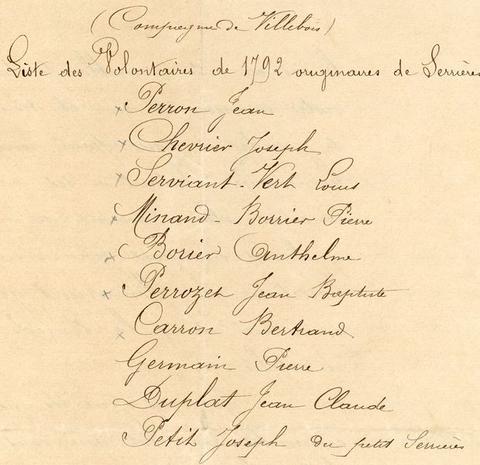 (Compagnie de Villebois)
Liste des Volontaires de 1792 originaires de Serrières
Perron Jean
Chevrier Joseph
Serviant-Vert Louis
Minand-Borrier Pierre
Borier Anthelme
Perrozet Jean Baptiste
Carron Bertrand
Germain Pierre
Duplat Jean Claude
Petit Joseph du petit Serrières